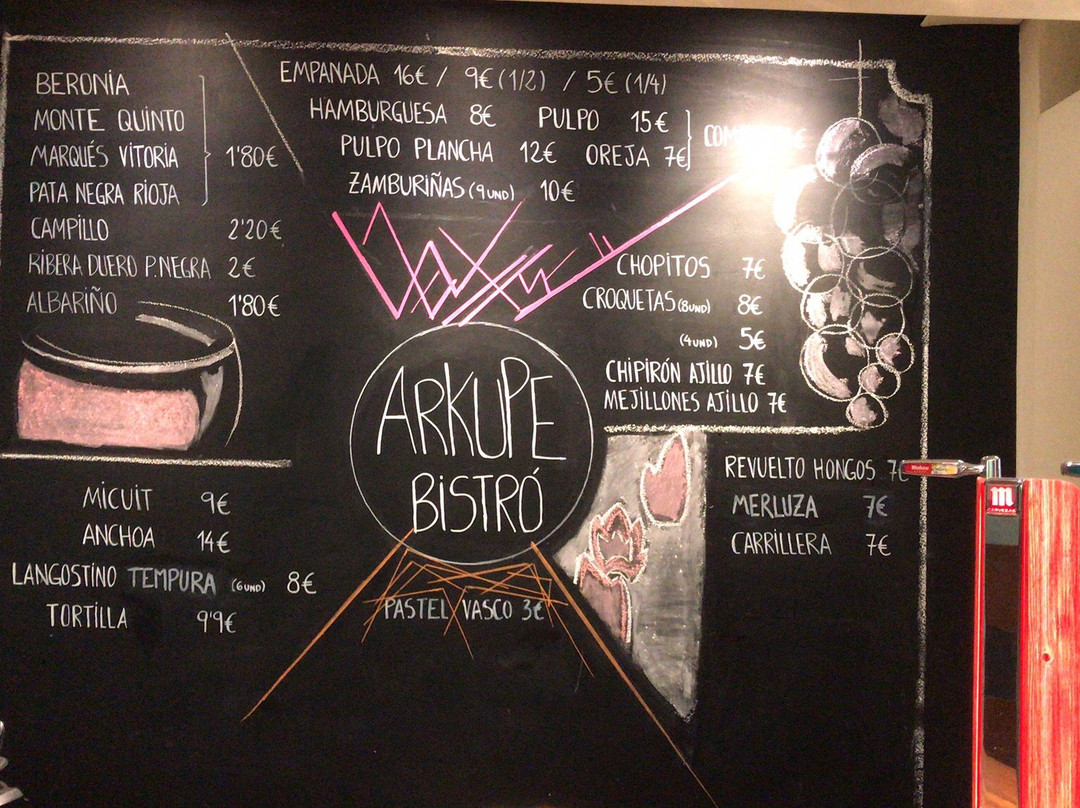 BERONIA
MONTE QUINTO
MARQUÉS VITORIA 1'80€
PATA NEGRA RIOJA
CAMPILLO 2'20€
RIBERA DUERO P.NEGRA 2€
ALBARIÑO 1'80€
EMPANADA 16€ / 9€ (1/2) / 5€ (1/4)
HAMBURGUESA 8€ PULPO 15€
PULPO PLANCHA 12€ OREJA 7€
ZAMBURIÑAS (9 UND) 10€
CHOPITOS 7€
CROQUETAS (8 UND) 8€
(4 UND) 5€
CHIPIRÓN AJILLO 7€
MEJILLONES AJILLO 7€
ARKUPE
BISTRÓ
MICUIT 9€
ANCHOA 14€
LANGOSTINO TEMPURA (6 UND) 8€
TORTILLA 9'9€
PASTEL VASCO 3€
REVUELTO HONGOS 7€
MERLUZA 7€
CARRILLERA 7€